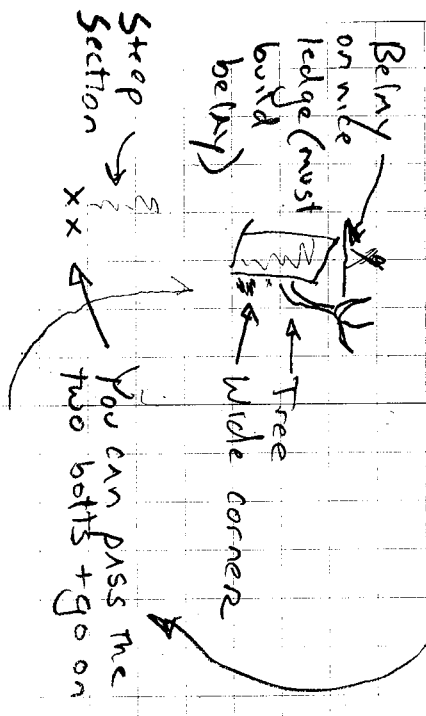 Belay
on nice
ledge (must
build
belay)
Tree
Wide corner
Steep
Section
x x
You can pass the
two bolts + go on